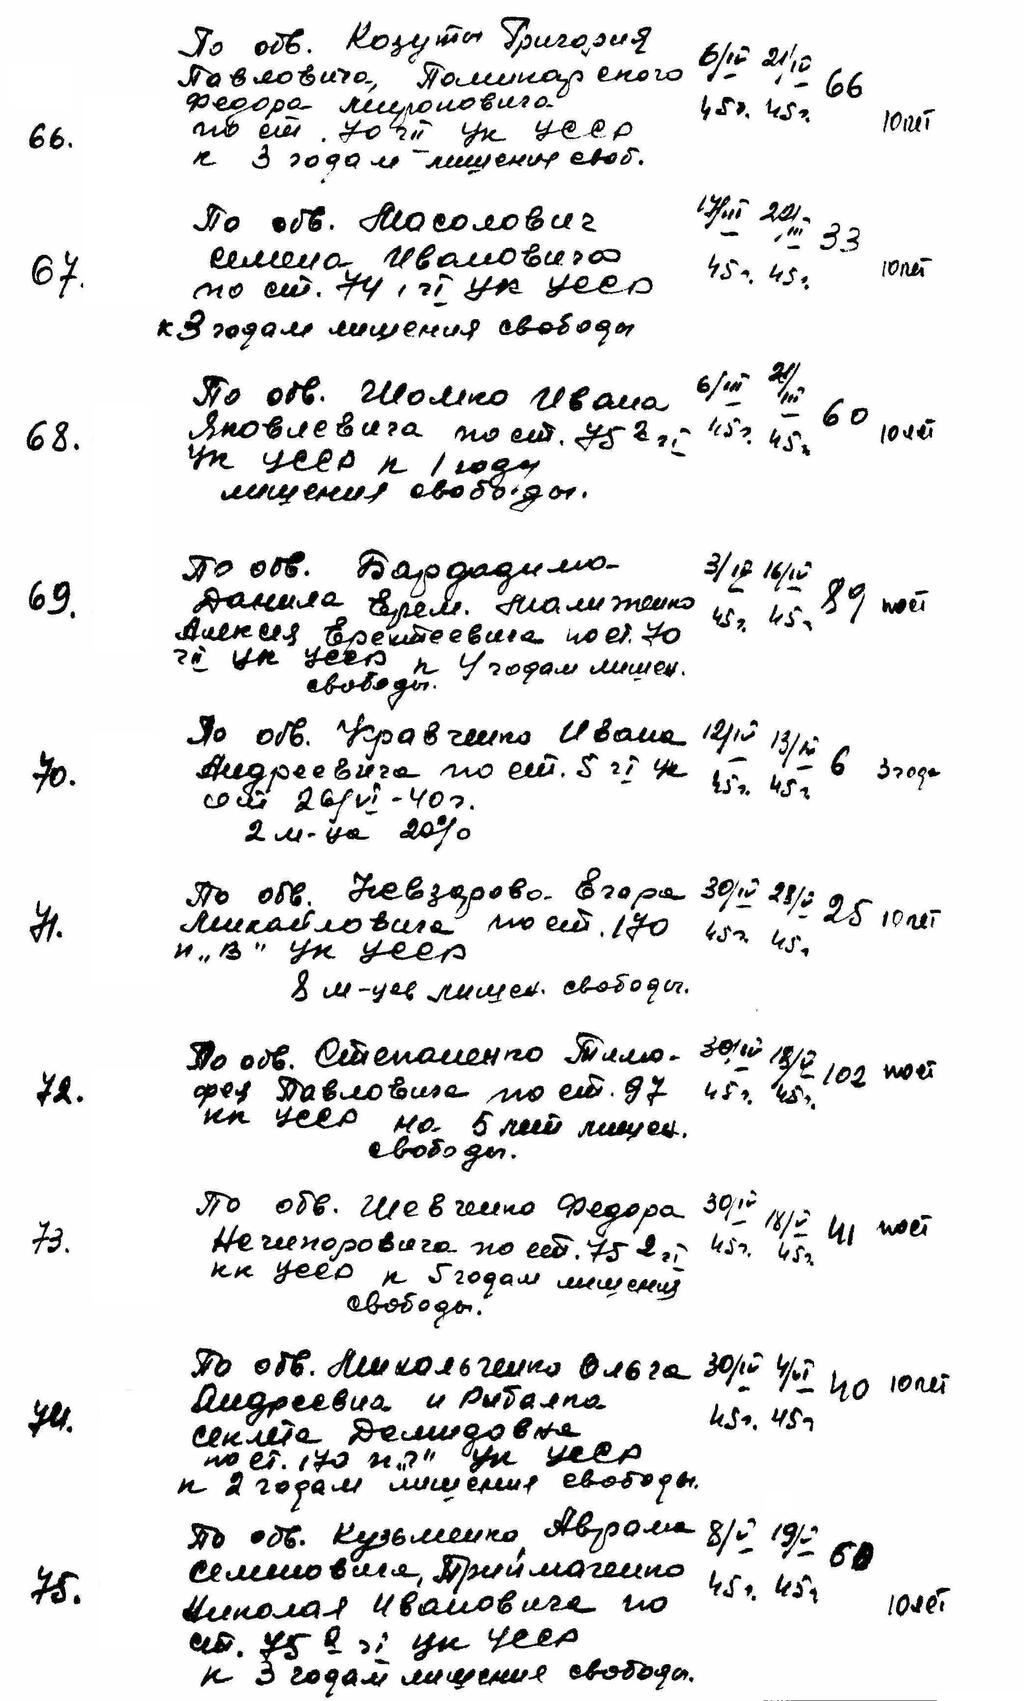 66.
По обв. Козуты Григория
Павловича, Паминарского
Федора Мироновича
по ст. 70 чII УК УССР
к 3 годам лишения своб.
6/IV 21/IV 66
45г. 45г.
10 лет
67.
По обв. Масолович
Семена Ивановича
по ст. 74, чI УК УССР
к 3 годам лишения свободы
17/III 22/III 33
45г. 45г.
10 лет
68.
По обв. Шомко Ивана
Яковлевича по ст. 75 2 чI
УК УССР к 1 году
лишения свободы.
6/III 21/III 60
45г. 45г.
10 лет
69.
По обв. Бардадимо-
Данила Ерем. Малиженко
Алексея Ерентеевича по ст. 70
чII УК УССР к 4 годам лишен.
свободы.
3/IV 16/IV 89
45г. 45г.
пост
70.
По обв. Кравченко Ивана
Андреевича по ст. 5 чI УК
от 26/VI-40г.
2 м-ца 20%
12/IV 13/IV 6
45г. 45г.
3 года
71.
По обв. Невзорова Егора
Михайловича по ст. 170
п. „в" УК УССР
8 м-цев лишен. свободы.
30/IV 28/V 25
45г. 45г.
10 лет
72.
По обв. Степаненко Тимо-
фея Павловича по ст. 97
КК УССР на 5 лет лишен.
свободы.
30/IV 18/V 102
45г. 45г.
пост
73.
По обв. Шевченко Федора
Нечипоровича по ст. 75 2 чI
КК УССР к 5 годам лишения
свободы.
30/IV 18/V 41
45г. 45г.
пост
74.
По обв. Микольченко Ольга
Андреевна и Рыбалка
Секлета Демидовна
по ст. 170 п. „г" УК УССР
к 2 годам лишения свободы.
30/IV 4/VI 40
45г. 45г
10 лет
75.
По обв. Кузьменко Аврама
Семеновича, Приймаченко
Николая Ивановича по
ст. 75 2 чI УК УССР
к 3 годам лишения свободы.
8/V 19/V 60
45г. 45г
10 лет